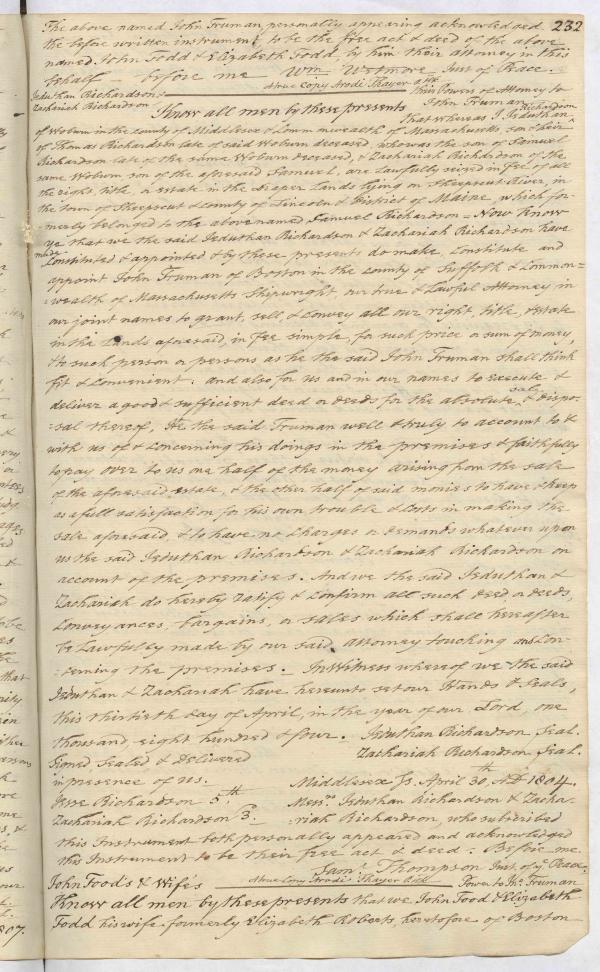 232
The above named John Truman personally appearing acknowledged
the before written instrument to be the free act & deed of the above
named John Todd & Elizabeth Todd by him their attorney in this
behalf — before me Wm Wetmore Just of Peace.
A true Copy Thayer
Jeduthan Richardson &
Zachariah Richardson
this Powers of Attorney to
John Truman
Know all men by these presents that whereas I Jeduthan Richardson
of Woburn in the county of Middlesex & Commonwealth of Massachusetts, son & heir
of Thomas Richardson late of said Woburn deceased, who was the son of Samuel
Richardson late of the same Woburn deceased, & Zachariah Richardson of the
same Woburn son of the aforesaid Samuel, are lawfully seized in fee of all
the right, title, or estate in the Draper Lands lying on Sheepscut River, in
the town of Sheepscut & County of Lincoln & District of Maine, which for-
merly belonged to the above named Samuel Richardson = Now Know
Ye that we the said Jeduthan Richardson & Zachariah Richardson have
made Constituted & appointed & by these presents do make, Constitute and
appoint John Truman of Boston in the county of Suffolk & Common=
=wealth of Massachusetts Shipwright, our true & Lawful Attorney in
our joint names to grant, sell, & Convey all our right, title, estate
in the Lands aforesaid, in fee simple, for such price or sum of money,
& to such person or persons as he the said John Truman shall think
fit & Convenient: and also for us and in our names to execute &
deliver a good & sufficient deed or deeds for the absolute sale & dispo-
=sal thereof, He the said Truman well & truly to account to &
with us of & Concerning his doings in the premises & faithfully
to pay over to us one half of the money arising from the sale
of the aforesaid estate, & the other half of said monies to have & keep
as a full satisfaction for his own trouble & Costs in making the
sale aforesaid, & to have no Charges or demands whatever upon
us the said Jeduthan Richardson & Zachariah Richardson on
account of the premises. And we the said Jeduthan &
Zachariah do hereby ratify & Confirm all such deed or deeds,
Conveyances, bargains, or sales which shall hereafter
be Lawfully made by our said attorney touching and Con-
=cerning the premises. — In Witness whereof we the said
Jeduthan & Zachariah have hereunto set our Hands & Seals,
this thirtieth day of April, in the year of our Lord, one
thousand, eight hundred & four. — Jeduthan Richardson Seal.
Signed, Sealed & delivered Zachariah Richardson Seal.
in presence of us.
Middlesex Ss. April 30th, AD 1804.
Jesse Richardson 5th
Messrs Jeduthan Richardson & Zacha-
Zachariah Richardson 3d.
=riah Richardson, who subscribed
this Instrument both personally appeared and acknowledged
this Instrument to be their free act & deed. Before me.
Saml Thompson Just. of Peace.
A true Copy Thayer
John Tood's & Wife's Power to Jno Truman
Know all men by these presents that we John Tood & Elizabeth
Todd his wife formerly Elizabeth Roberts, heretofore of Boston